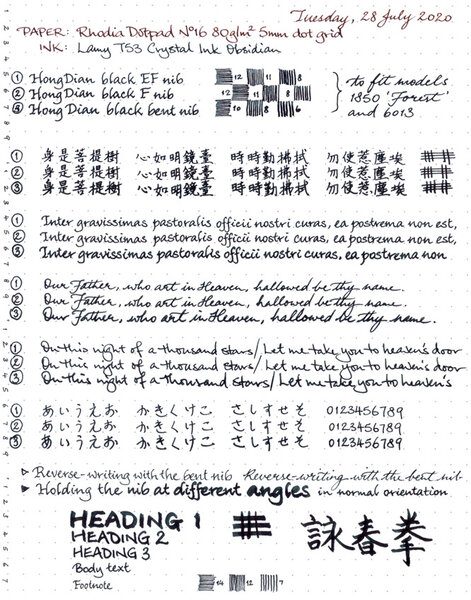 Tuesday, 28 July 2020
PAPER: Rhodia Dotpad Nº16 80g/m² 5mm dot grid
INK: Lamy T53 Crystal Ink Obsidian
① HongDian black EF nib 12 11 8
② HongDian black F nib 12 11 8
③ HongDian black bent nib 10 8 6
to fit models
1850 'Forest'
and 6013
① 身是菩提樹 心如明鏡臺 時時勤拂拭 勿使惹塵埃
② 身是菩提樹 心如明鏡臺 時時勤拂拭 勿使惹塵埃
③ 身是菩提樹 心如明鏡臺 時時勤拂拭 勿使惹塵埃
① Inter gravissimas pastoralis officii nostri curas, ea postrema non est,
② Inter gravissimas pastoralis officii nostri curas, ea postrema non est,
③ Inter gravissimas pastoralis officii nostri curas, ea postrema non
① Our Father, who art in Heaven, hallowed be thy name.
② Our Father, who art in Heaven, hallowed be thy name.
③ Our Father, who art in Heaven, hallowed be thy name.
① On this night of a thousand stars/Let me take you to heaven's door
② On this night of a thousand stars/Let me take you to heaven's door
③ On this night of a thousand stars/Let me take you to heaven's
① あいうえお かきくけこ さしすせそ 0123456789
② あいうえお かきくけこ さしすせそ 0123456789
③ あいうえお かきくけこ さしすせそ 0123456789
▷ Reverse-writing with the bent nib Reverse-writing with the bent nib
▶ Holding the nib at different angles in normal orientation
HEADING 1
HEADING 2
HEADING 3
Body text
Footnote
詠春拳
14 12 7